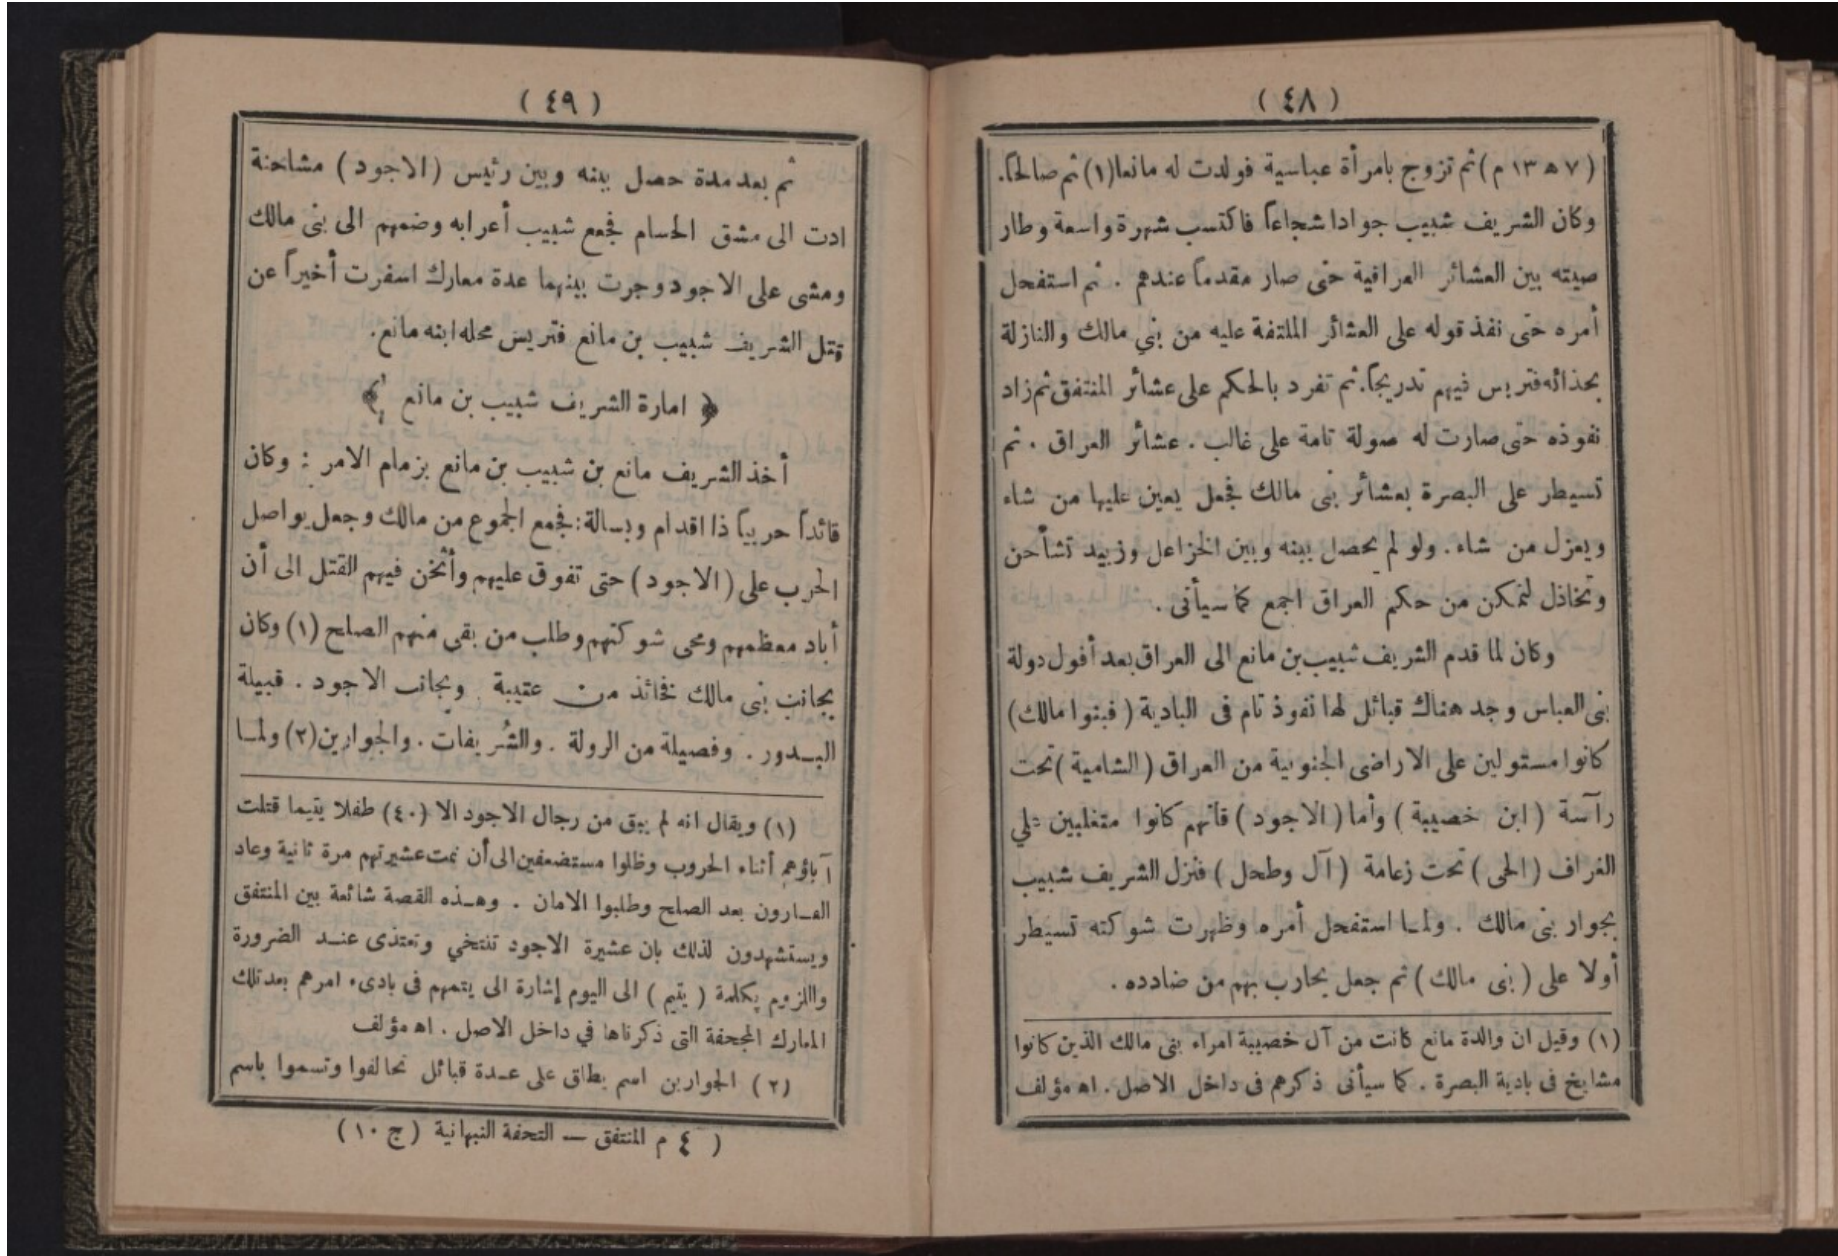 ( ٤٨ )
( ٧ ه‍ ١٣ م ) ثم تزوج بامرأة عباسية فولدت له مانعا (١) ثم صالحاً.
وكان الشريف شبيب جوادا شجاعاً فاكتسب شهرة واسعة وطار
صيته بين العشائر العراقية حتى صار مقدماً عندهم . ثم استفحل
أمره حتى نفذ قوله على العشائر الملتفة عليه من بني مالك والنازلة
بحذائه فتريس فيهم تدريجاً. ثم تفرد بالحكم على عشائر المنتفق ثم زاد
نفوذه حتى صارت له صولة تامة على غالب . عشائر العراق . ثم
تسيطر على البصرة بعشائر بنى مالك فجعل يعين عليها من شاء
ويعزل من شاء . ولو لم يحصل بينه وبين الخزاعل وزبيد تشاحن
وتخاذل لتمكن من حكم العراق اجمع كما سيأتى .
وكان لما قدم الشريف شبيب بن مانع الى العراق بعد أفول دولة
بنى العباس وجد هناك قبائل لها نفوذ تام فى البادية ( فبنوا مالك )
كانوا مستولين على الاراضى الجنوبية من العراق ( الشامية ) تحت
رآسة ( ابن خصيبة ) وأما ( الاجود ) فانهم كانوا متغلبين على
الغراف ( الحى ) تحت زعامة ( آل وطحل ) فنزل الشريف شبيب
بجوار بنى مالك . ولما استفحل أمره وظهرت شوكته تسيطر
أولا على ( بنى مالك ) ثم جعل يحارب بهم من ضادده .
(١) وقيل ان والدة مانع كانت من آل خصيبة امراء بنى مالك الذين كانوا
مشايخ فى بادية البصرة . كما سيأتى ذكرهم فى داخل الاصل . اه‍ مؤلف
( ٤٩ )
ثم بعد مدة حصل بينه وبين رئيس ( الاجود ) مشاحنة
ادت الى مشق الحسام فجمع شبيب أعرابه وضمهم الى بنى مالك
ومشى على الاجود وجرت بينهما عدة معارك اسفرت أخيراً عن
قتل الشريف شبيب بن مانع فتريس محله ابنه مانع.
﴿ امارة الشريف شبيب بن مانع ﴾
أخذ الشريف مانع بن شبيب بن مانع بزمام الامر : وكان
قائداً حربياً ذا اقدام وبسالة : فجمع الجموع من مالك وجعل يواصل
الحرب على ( الاجود ) حتى تفوق عليهم وأثخن فيهم القتل الى أن
أباد معظمهم ومحى شوكتهم وطلب من بقى منهم الصلح (١) وكان
بجانب بنى مالك فخائذ من عقيبة وبجانب الاجود . قبيلة
البـدور . وفصيلة من الرولة . والشُريفات . والجوارين (٢) ولمـا
(١) ويقال انه لم يبق من رجال الاجود الا (٤٠) طفلا يتيما قتلت
آباؤهم أثناء الحروب وظلوا مستضعفين الى أن نمت عشيرتهم مرة ثانية وعاد
الفـارون بعد الصلح وطلبوا الامان . وهـذه القصة شائعة بين المنتفق
ويستشهدون لذلك بان عشيرة الاجود تنتخي وتعتذى عنـد الضرورة
واللزوم بكلمة ( يتيم ) الى اليوم إشارة الى يتمهم فى بادىء امرهم بعد تلك
المعارك المجحفة التى ذكرناها في داخل الاصل . اه‍ مؤلف
(٢) الجوارين اسم يطلق على عـدة قبائل تحالفوا وتسموا باسم
( ٤ م المنتفق — التحفة النبهانية ( ج ١٠ )